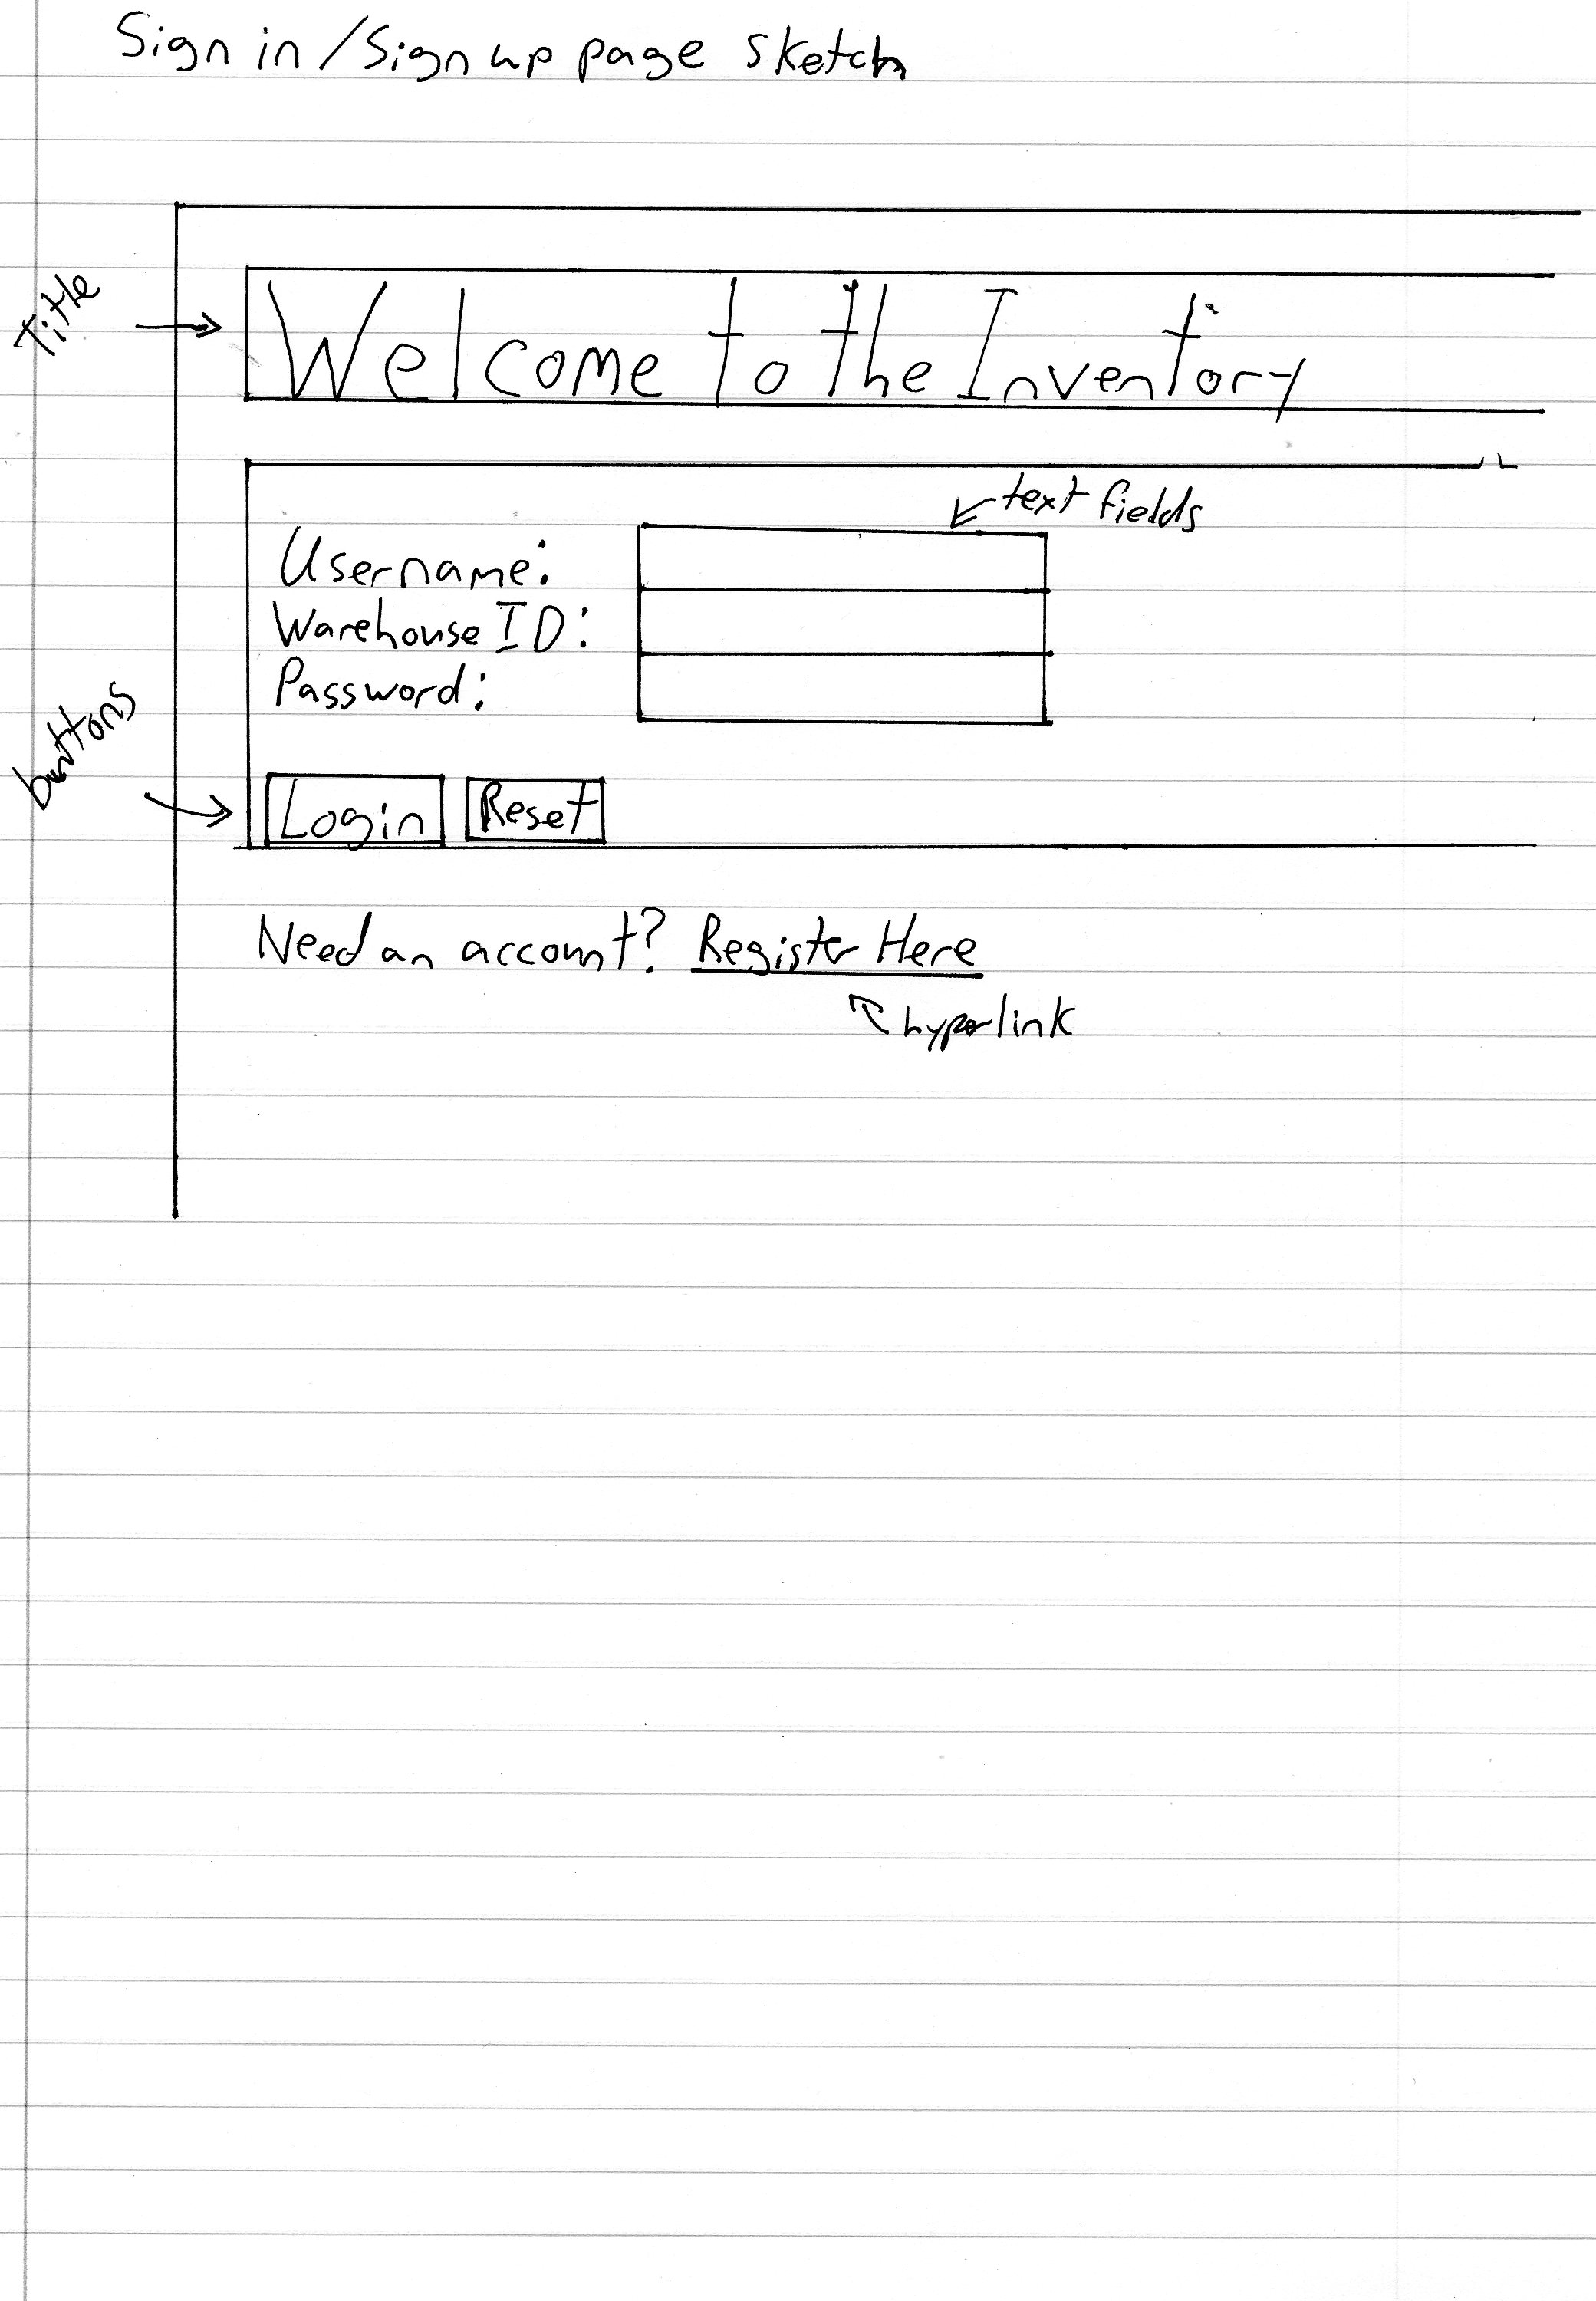 Sign in/Sign up page sketch
Title
Welcome to the Inventory
text fields
Username:
Warehouse ID:
Password:
buttons
Login Reset
Need an account? Register Here
hyperlink